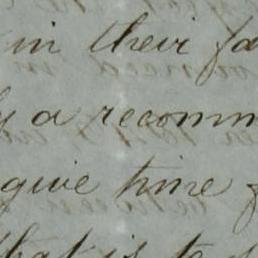 in their fa
y a recomm
give time f
that is to